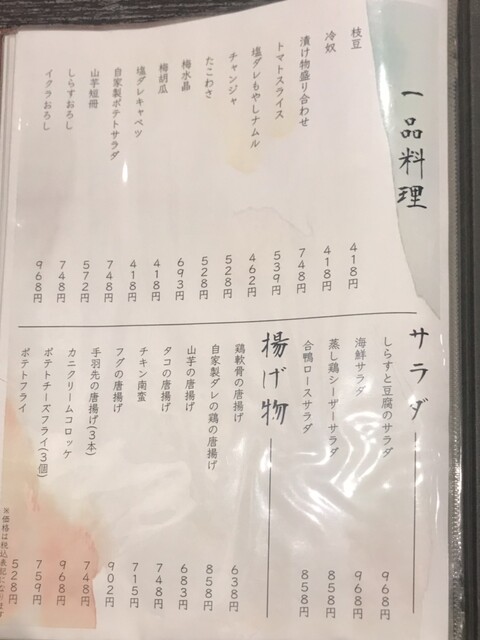 一品料理
枝豆 418円
冷奴 418円
漬け物盛り合わせ 748円
トマトスライス 539円
塩ダレもやしナムル 462円
チャンジャ 528円
たこわさ 528円
梅水晶 693円
梅胡瓜 418円
塩ダレキャベツ 418円
自家製ポテトサラダ 748円
山芋短冊 572円
しらすおろし 748円
イクラおろし 968円
サラダ
しらすと豆腐のサラダ 968円
海鮮サラダ 968円
蒸し鶏シーザーサラダ 858円
合鴨ロースサラダ 858円
揚げ物
鶏軟骨の唐揚げ 638円
自家製ダレの鶏の唐揚げ 858円
山芋の唐揚げ 683円
タコの唐揚げ 748円
チキン南蛮 715円
フグの唐揚げ 902円
手羽先の唐揚げ(3本) 748円
カニクリームコロッケ 968円
ポテトチーズフライ(3個) 759円
ポテトフライ 528円
※価格は税込表記になります